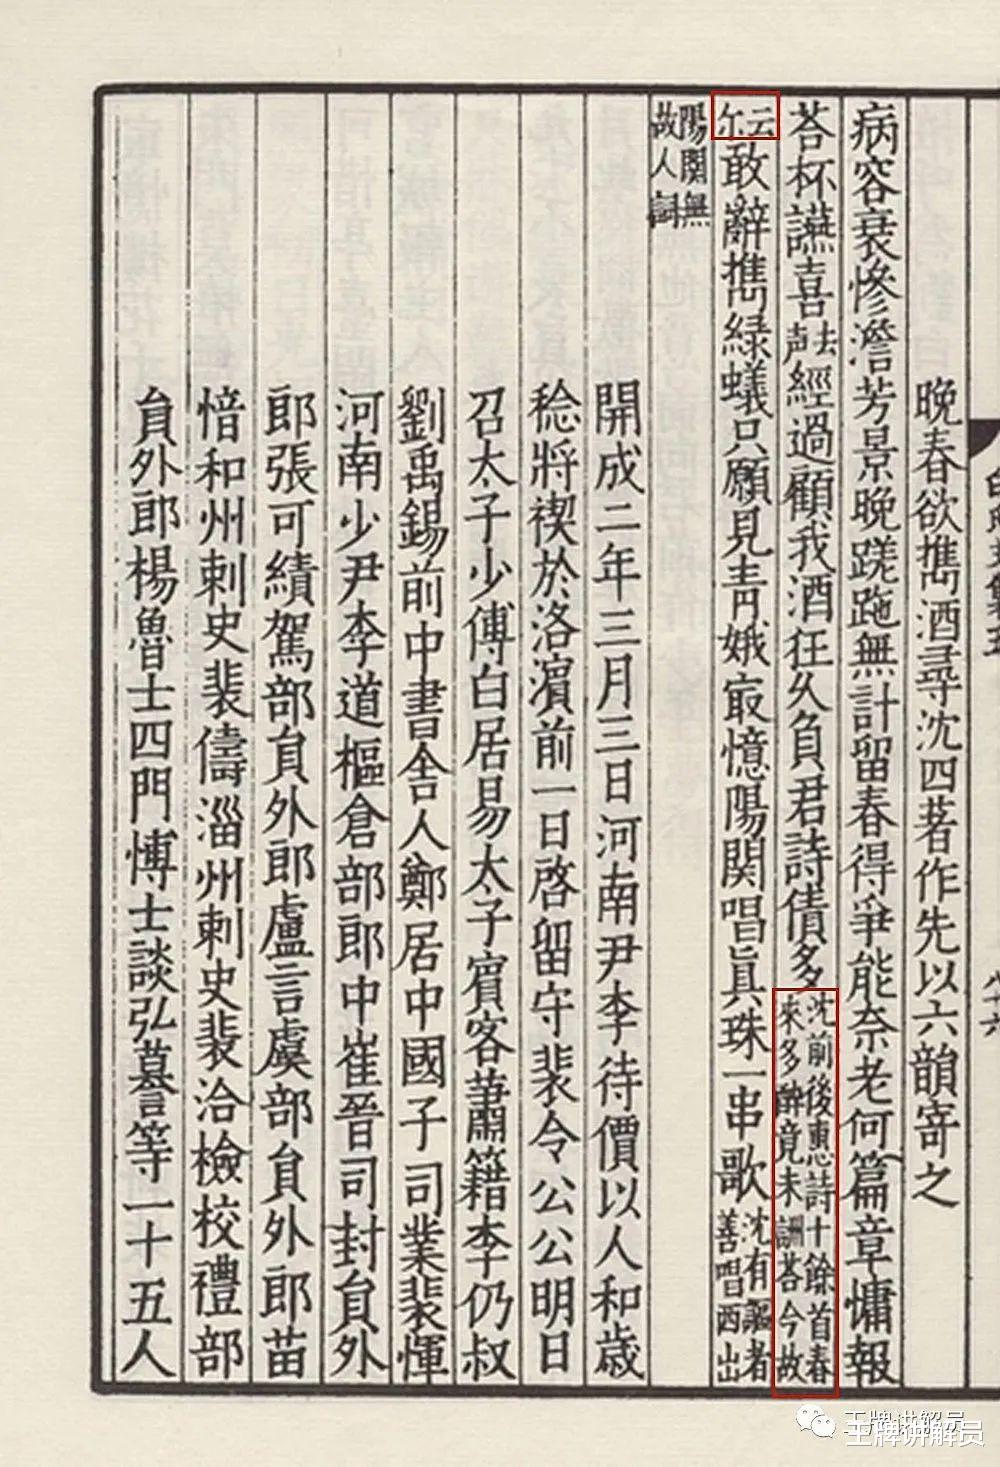 晚春欲㩦酒尋沈四著作先以六韻寄之
病容衰慘澹芳景晚蹉跎無計留春得爭能奈老何篇章慵報
荅杯讌喜去声經過顧我酒狂久負君詩債多沈前後惠詩十餘首春來多醉竟未詶荅今故
云尒敢辭㩦緑蟻只願見青娥㝡憶陽関唱真珠一串歌沈有謳者善唱西出
陽關無故人詞
開成二年三月三日河南尹李待價以人和歲
稔將禊於洛濱前一日啓留守裴令公公明日
召太子少傅白居易太子賓客蕭籍李仍叔
劉禹錫前中書舍人鄭居中國子司業裴惲
河南少尹李道樞倉部郎中崔晉司封貟外
郎張可績駕部貟外郎盧言虞部貟外郎苗
愔和州刺史裴儔淄州刺史裴洽檢校禮部
貟外郎楊魯士四門博士談弘謩等一十五人
王牌讲解员